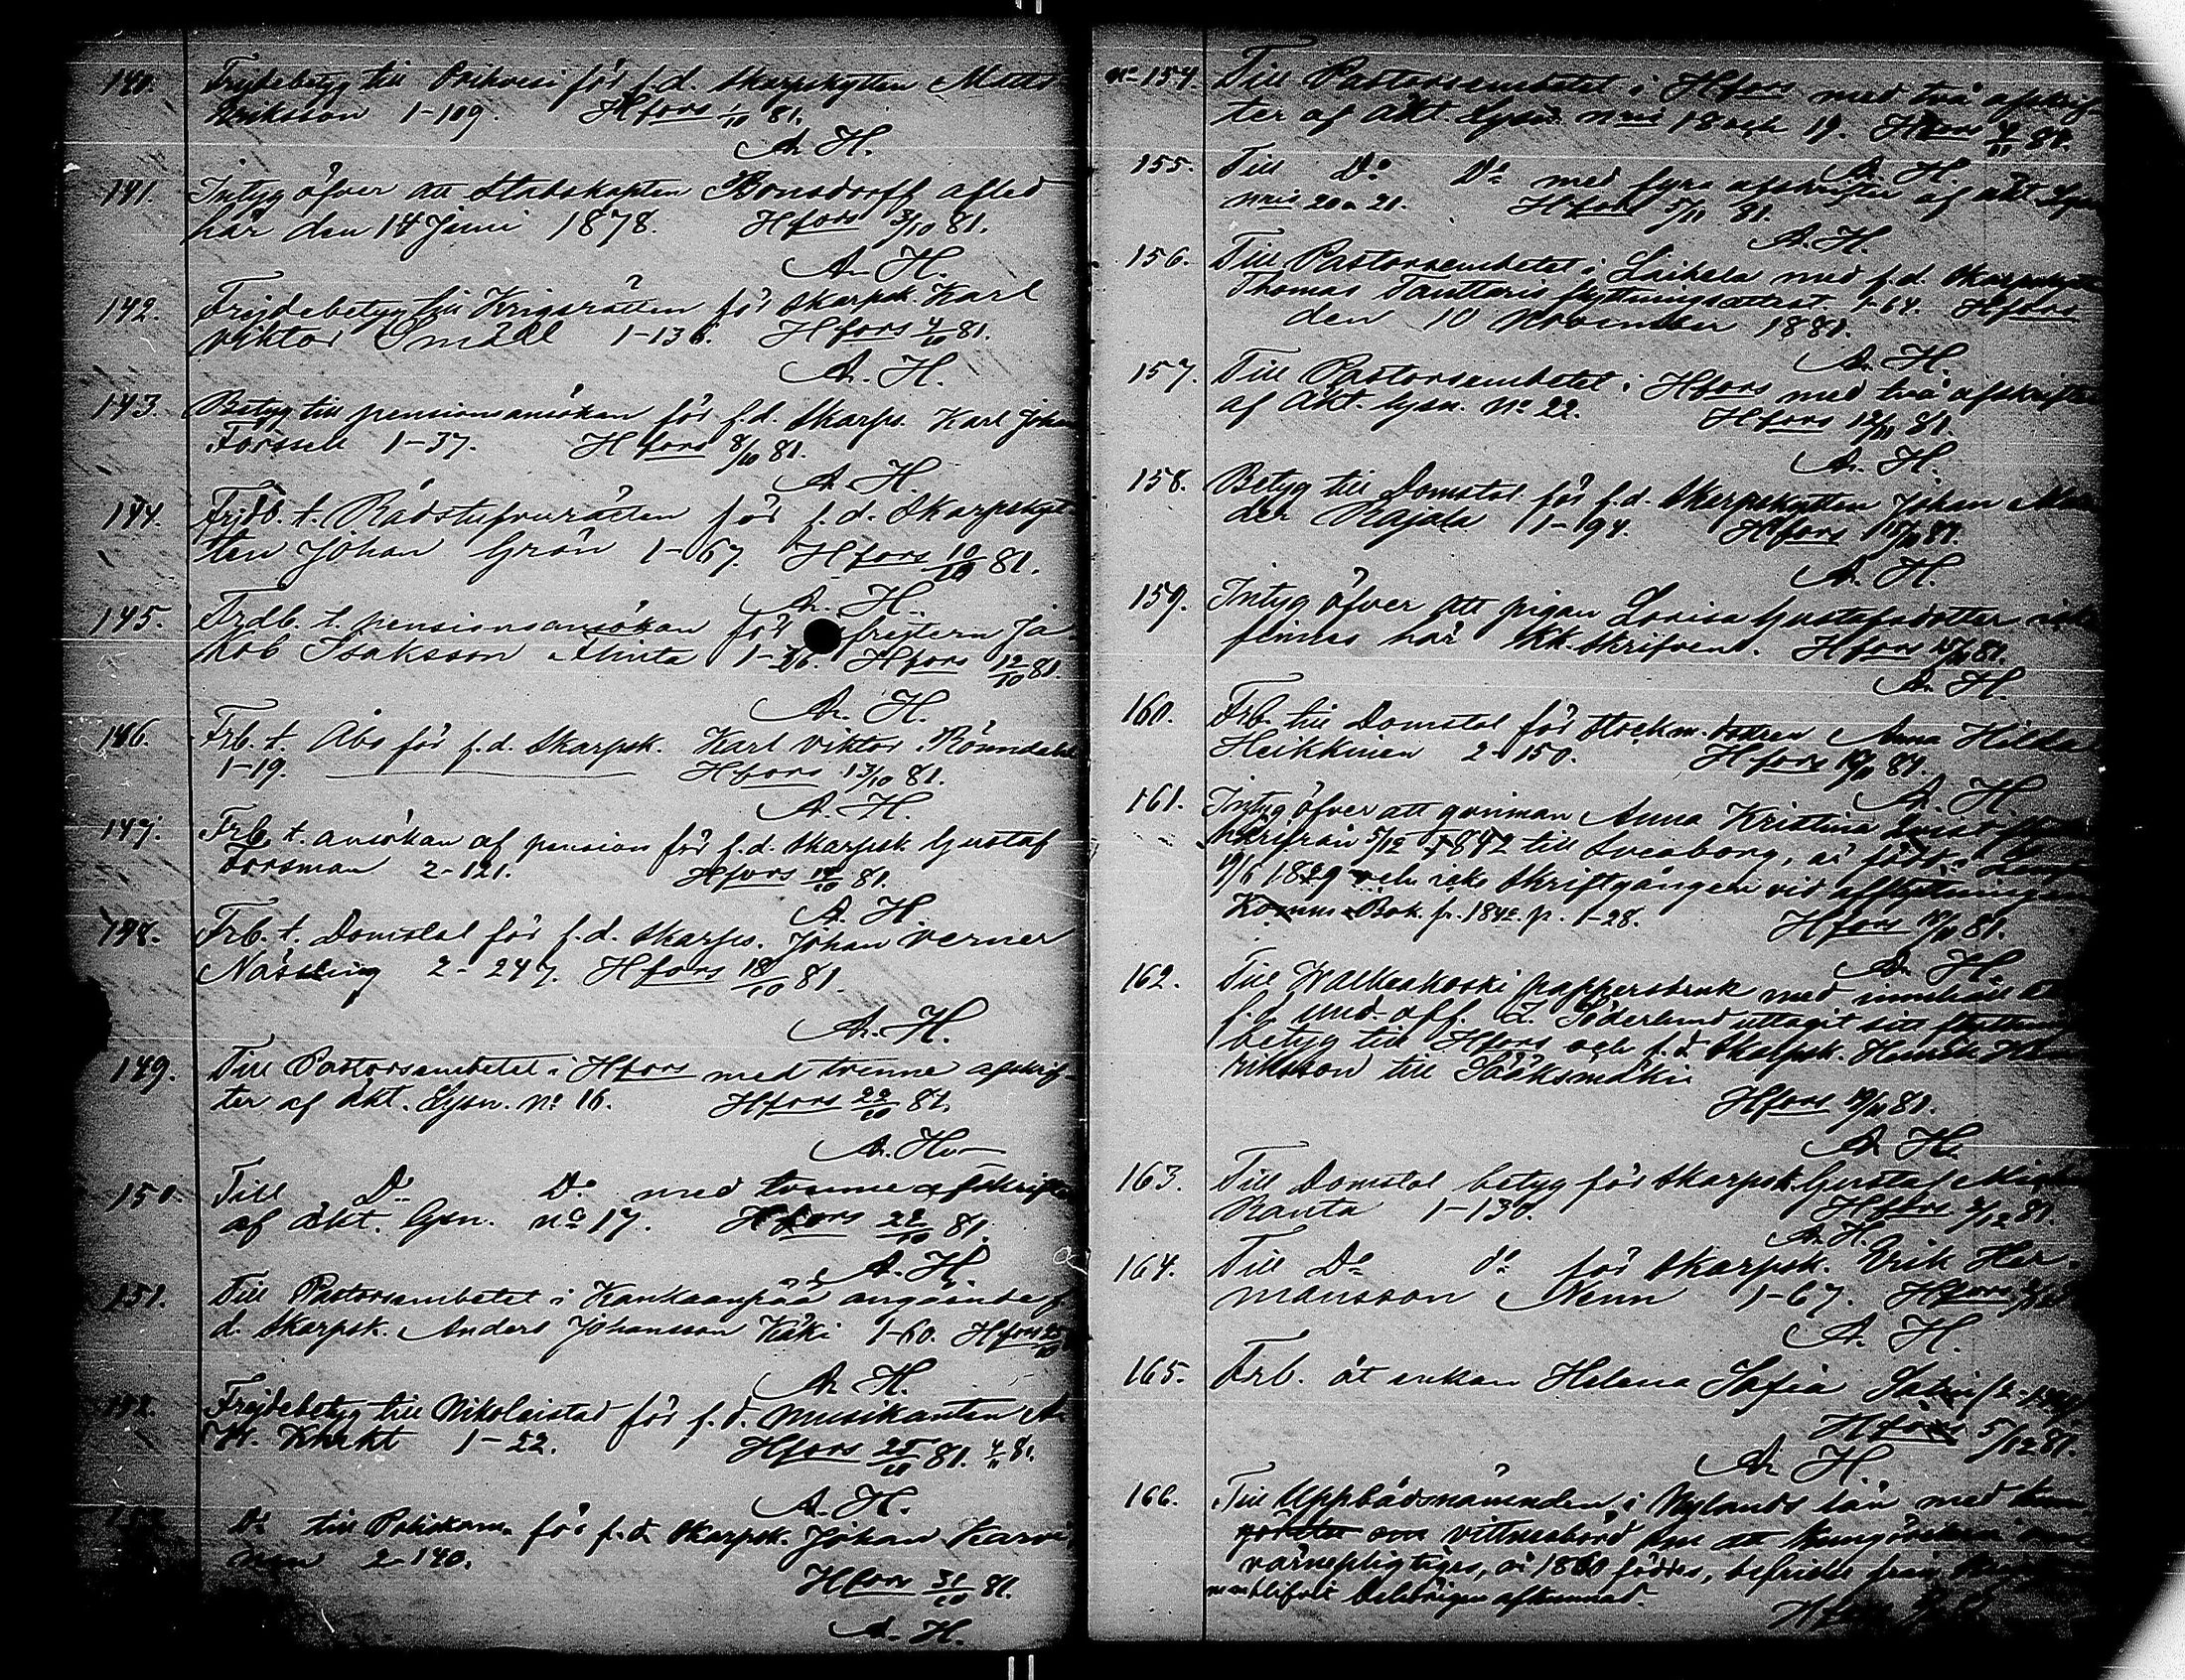 140. Frejdebetyg till för f.d. Skarpskytten Matts
Eriksson 1-109. Hfors 1/10 81.
A. H.
141. Intyg öfver att Stabskapten Bonsdorff afled
här den 14 Juni 1878. Hfors 3/10 81.
A. H.
142. Frejdebetyg till Krigsrätten för Skarpsk. Karl
Viktor 1-136. Hfors 4/10 81.
A. H.
143. Betyg till pensionsansökan för f.d. Skarps. Karl Johan
Forssell 1-37. Hfors 8/10 81.
A. H
144. Frjdb. t. Rådstufvurätten för f.d. Skarpskyt
ten Johan Grön 1-67. Hfors 10/10 81.
A. H.
145. Frdb. t. pensionsansökan för frejtern Ja-
kob Isaksson 1-26. Hfors 12/10 81.
A. H.
146. Frb. t. Åbo för f.d. Skarpsk. Karl Viktor
1-19. Hfors 13/10 81.
A. H.
147. Frb. t. ansökan af pension för f.d. Skarpsk Gustaf
Forsman 2-121. Hfors 81.
A. H.
148. Frb. t. Domstol för f.d. Skarps. Johan Verner
Nässling 2-247. Hfors 18/10 81.
A. H.
149. Till Pastorsembetet i Hfors med trenne afskrif-
ter af äkt. Lysn. No 16. Hfors 22/10 81.
A. H.
150. Till Do Do med trenne afskrifter
af äkt. lysn. No 17. Hfors 22/10 81.
A. H.
151. Till Pastorsembetet i Kankaanpää angående f.
d. Skarpsk. Anders Johansson Käki 1-60. Hfors
A. H.
152. Frejdebetyg till Nikolaistad för f.d. Musikanten
W. Knekt 1-22. Hfors 25/10 81. 4/11 81.
A. H.
153. Do till för f.d. Skarpsk. Johan Karvi
nen 2-140.
Hfors 31/10 81.
A. H.
No 154. Till Pastorsembetet i Hfors med två afskrif-
ter af Äkt. Lysn. nris 18 och 19. Hfors 4/11 81.
A. H.
155. Till Do Do med fyra afskrifter af äkt. Lysn
nris 20 o 21. Hfors 5/11 81.
A. H.
156. Till Pastorsembetet i Laihela med f.d. Skarpskytt
Thomas flyttningsattest 1-64. Hfors
den 10 November 1881.
A. H.
157. Till Pastorsembetet i Hfors med två afskrifter
af Äkt. lysn. No 22. Hfors 12/11 81.
A. H.
158. Betyg till Domstol för f.d. Skarpskytten Johan
der Rajala 1-194. Hfors 15/11 81.
A. H.
159. Intyg öfver att pigan Lovisa Gustafsdotter icke
finnes här kk.skrifven. Hfors 15/11 81.
A. H.
160. Frb. till Domstol för Anna Hilda
Heikkinen 2-150. Hfors 81.
A. H.
161. Intyg öfver att qvinnan Anna Kristina
härifrån 5/12 1842 till Sveaborg, är född i
1829 och icke skriftgången vid afflyttningen
Komm. Bok. fr. 1842 p. 1-28. Hfors 81.
A. H.
162. Till Walkeakoski pappersbruk med innehåll
f.d. und. off. Z. Söderlund uttagit sitt flyttnings
betyg till Hfors och f.d. Skarpsk. Henrik
riksson till Sääksmäki
Hfors 19/11 81.
A. H.
163. Till Domstol betyg för Skarpsk. Gustaf
Ranta 1-130. Hfors 2/12 81.
A. H.
164. Till Do do för Skarpsk. Erik Her-
mansson 1-67. Hfors
A. H.
165. Frb. åt enkan Helena Sofia
Hfors 5/12 81.
A. H
166. Till Uppbådsnämnden i Nylands län med
vittnesbörd att
värnepligtiges, år 1860 födde, befrielse från
vederbörligen afkunnad.